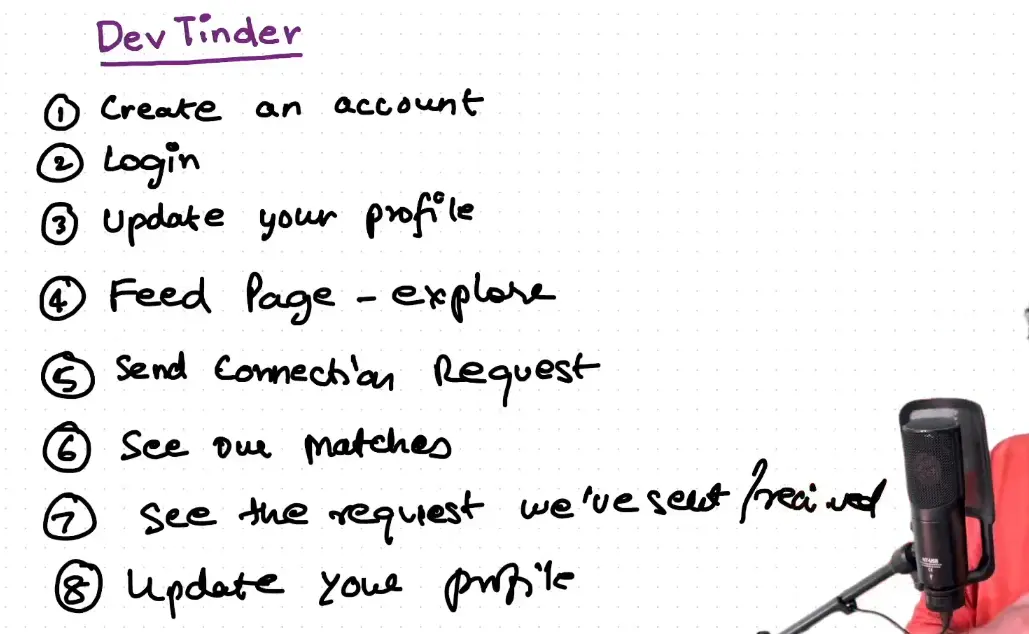 Dev Tinder
① Create an account
② Login
③ Update your profile
④ Feed Page - explore
⑤ Send Connection Request
⑥ See our Matches
⑦ See the request we've sent/recived
⑧ Update your profile